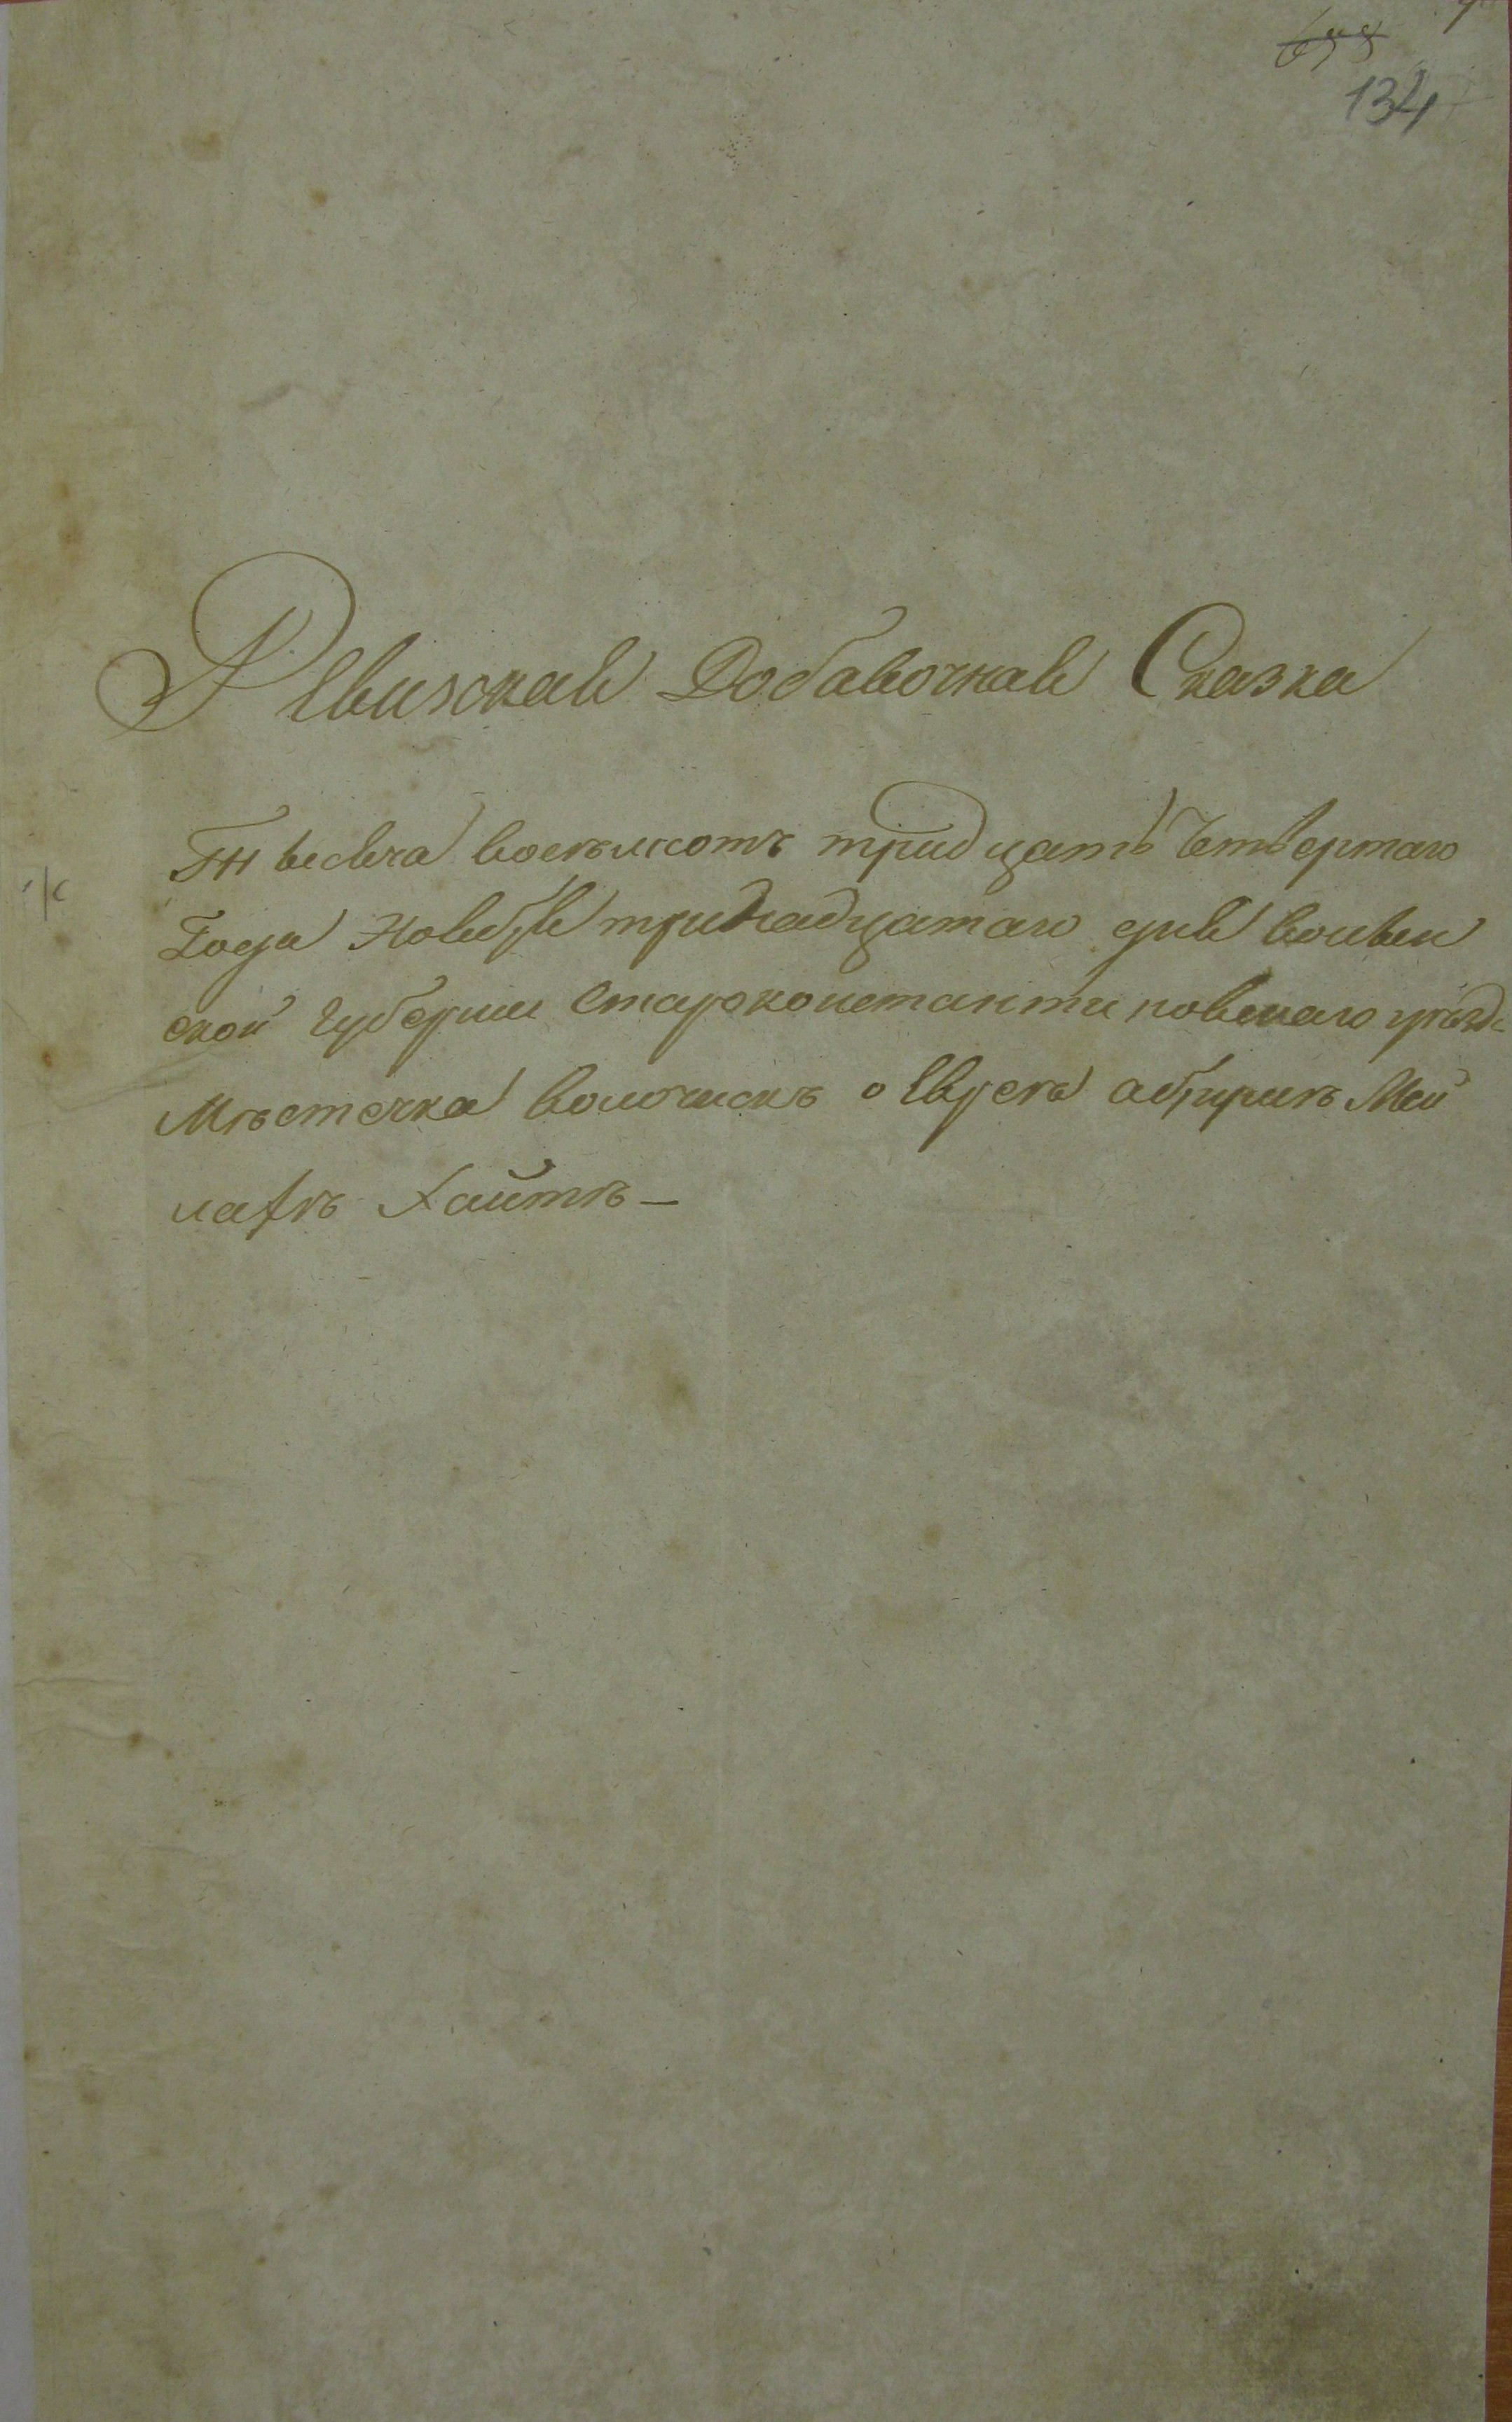 134
Ревизская Добавочная Сказка
Тысеча восемъсотъ тридцать Четвертаго
Года Ноября тринадцатаго дня волын
ской Губернии Староконстантиновскаго уезда
Мѣстечка волочискъ о Еврев
Хаитъ —